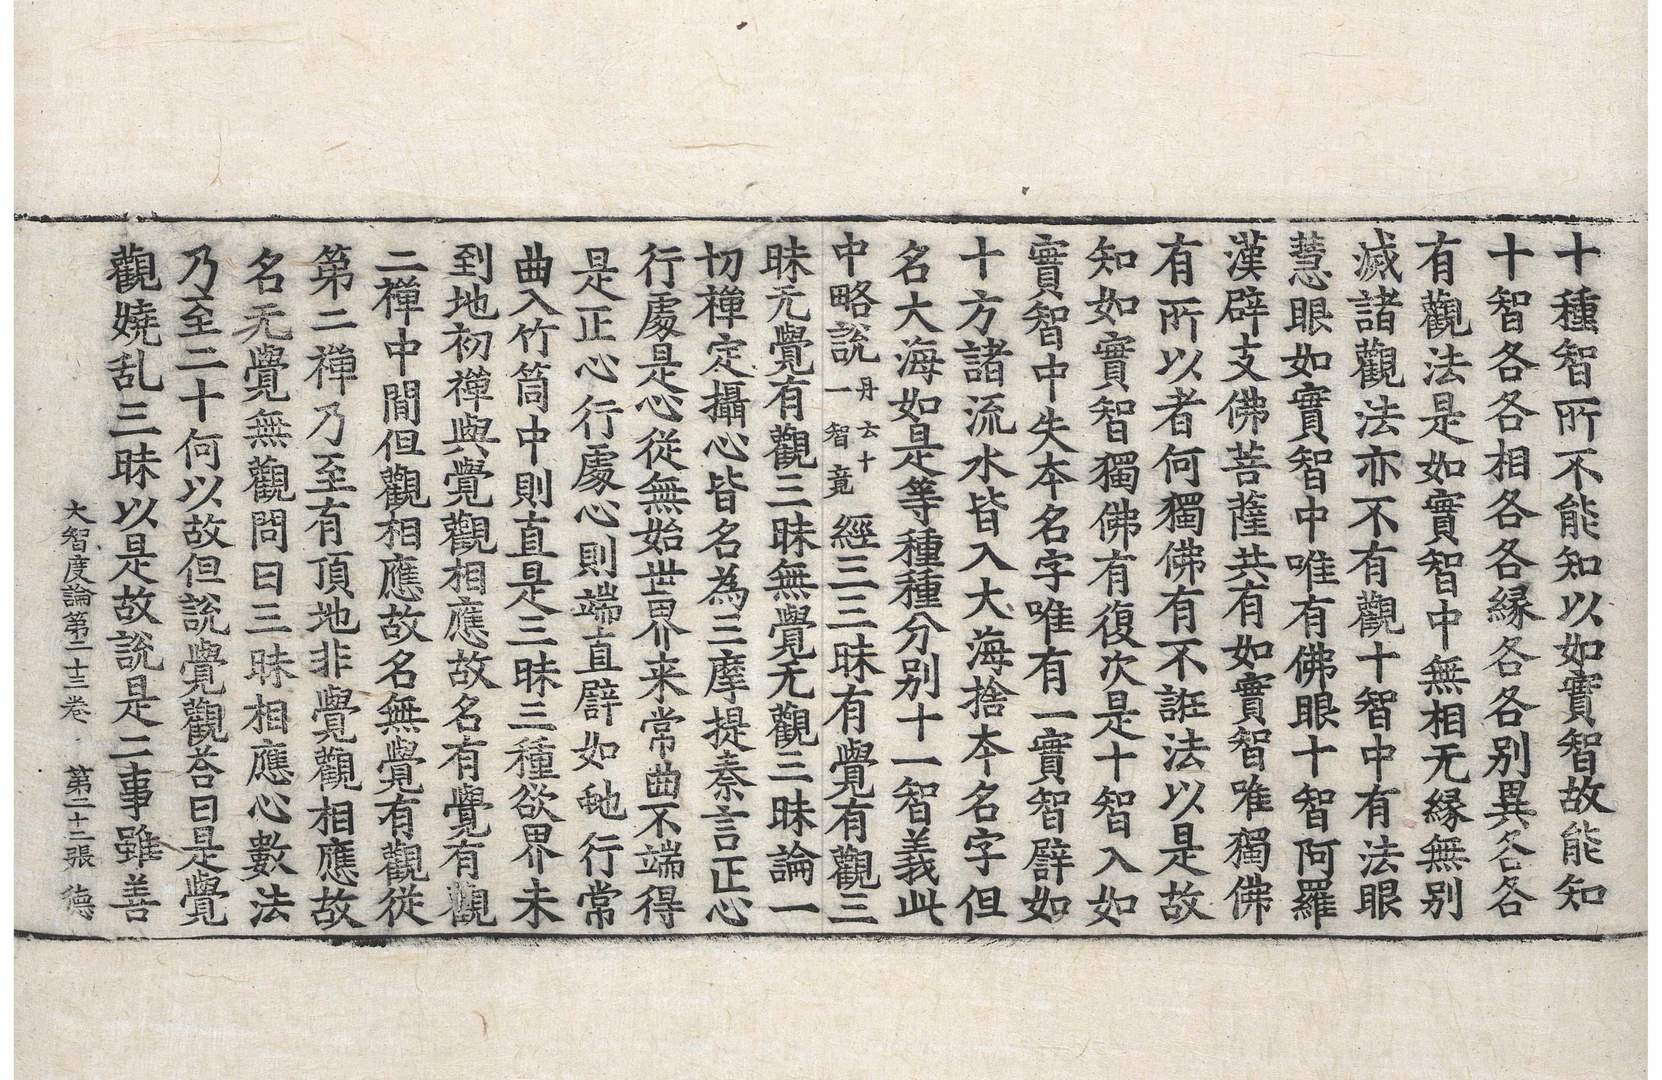 十種智所不能知以如實智故能知
十智各各相各各縁各各別異各各
有觀法是如實智中無相无縁無別
滅諸觀法亦不有觀十智中有法眼
慧眼如實智中唯有佛眼十智阿羅
漢辟支佛菩薩共有如實智唯獨佛
有所以者何獨佛有不誑法以是故
知如實智獨佛有復次是十智入如
實智中失本名字唯有一實智譬如
十方諸流水皆入大海捨本名字但
名大海如是等種種分別十一智義此
中略說丹云十一智竟經三三昧有覺有觀三
昧无覺有觀三昧無覺无觀三昧論一
切禪定攝心皆名為三摩提秦言正心
行處是心從無始世界来常曲不端得
是正心行處心則端直譬如虵行常
曲入竹筒中則直是三昧三種欲界未
到地初禪與覺觀相應故名有覺有觀
二禪中間但觀相應故名無覺有觀從
第二禪乃至有頂地非覺觀相應故
名无覺無觀問曰三昧相應心數法
乃至二十何以故但說覺觀荅曰是覺
觀嬈乱三昧以是故說是二事雖善
大智度論第二十三卷 第二十二張 德